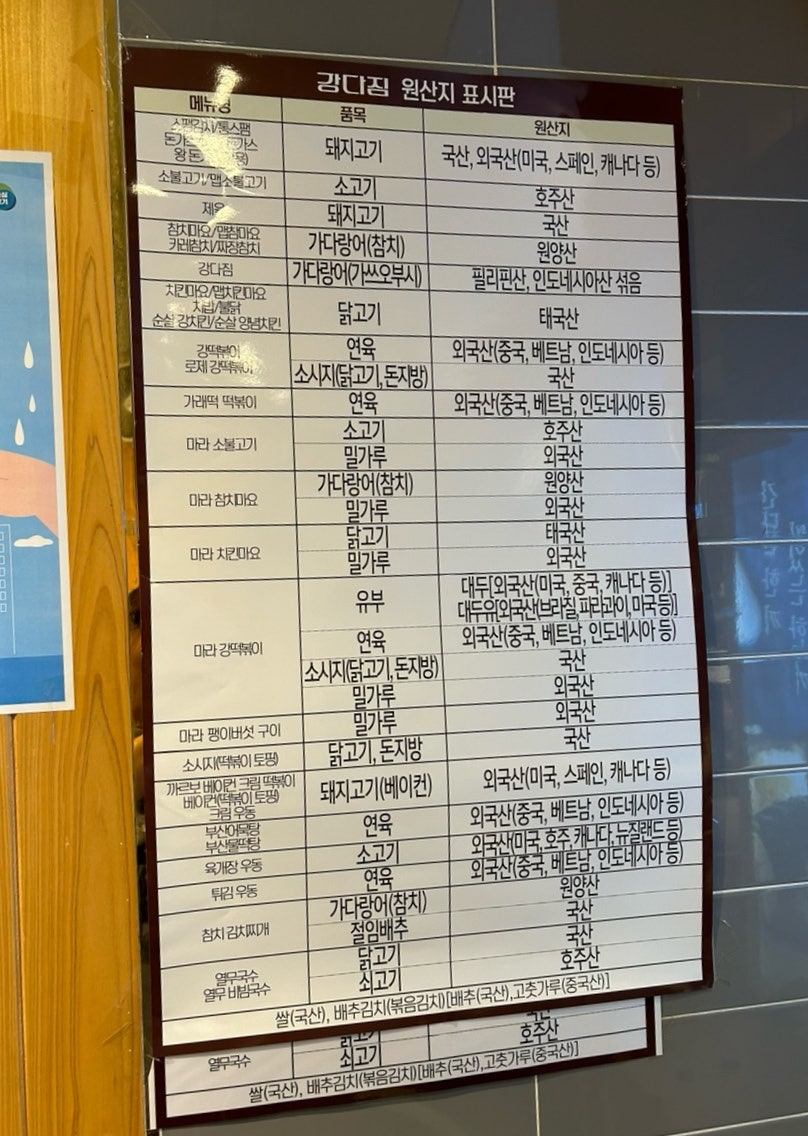 강다짐 원산지 표시판
메뉴명 품목 원산지
스팸김치/통스팸
돼지고기 국산, 외국산(미국, 스페인, 캐나다 등)
소불고기/맵소불고기 소고기 호주산
제육 돼지고기 국산
참치마요/맵참마요
카레참치/짜장참치 가다랑어(참치) 원양산
강다짐 가다랑어(가쓰오부시) 필리핀산, 인도네시아산 섞음
치킨마요/맵치킨마요
치밥/불닭
순살 강치킨/순살 양념치킨 닭고기 태국산
강떡볶이
로제 강떡볶이
연육 외국산(중국, 베트남, 인도네시아 등)
소시지(닭고기, 돈지방) 국산
가래떡 떡볶이 연육 외국산(중국, 베트남, 인도네시아 등)
마라 소불고기
소고기 호주산
밀가루 외국산
마라 참치마요
가다랑어(참치) 원양산
밀가루 외국산
마라 치킨마요
닭고기 태국산
밀가루 외국산
마라 강떡볶이
유부
대두[외국산(미국, 중국, 캐나다 등)]
대두유[외국산(브라질, 파라과이, 미국 등)]
연육 외국산(중국, 베트남, 인도네시아 등)
소시지(닭고기, 돈지방) 국산
밀가루 외국산
마라 팽이버섯 구이 밀가루 외국산
소시지(떡볶이 토핑) 닭고기, 돈지방 국산
까르보 베이컨 크림 떡볶이
베이컨(떡볶이 토핑)
크림 우동
돼지고기(베이컨) 외국산(미국, 스페인, 캐나다 등)
부산어묵탕
부산물떡탕
연육 외국산(중국, 베트남, 인도네시아 등)
육개장 우동 소고기 외국산(미국, 호주, 캐나다, 뉴질랜드 등)
튀김 우동 연육 외국산(중국, 베트남, 인도네시아 등)
참치 김치찌개
가다랑어(참치) 원양산
절임배추 국산
열무국수
열무 비빔국수
닭고기 국산
쇠고기 호주산
쌀(국산), 배추김치(볶음김치)[배추(국산),고춧가루(중국산)]
열무국수
쇠고기 호주산
쌀(국산), 배추김치(볶음김치)[배추(국산),고춧가루(중국산)]